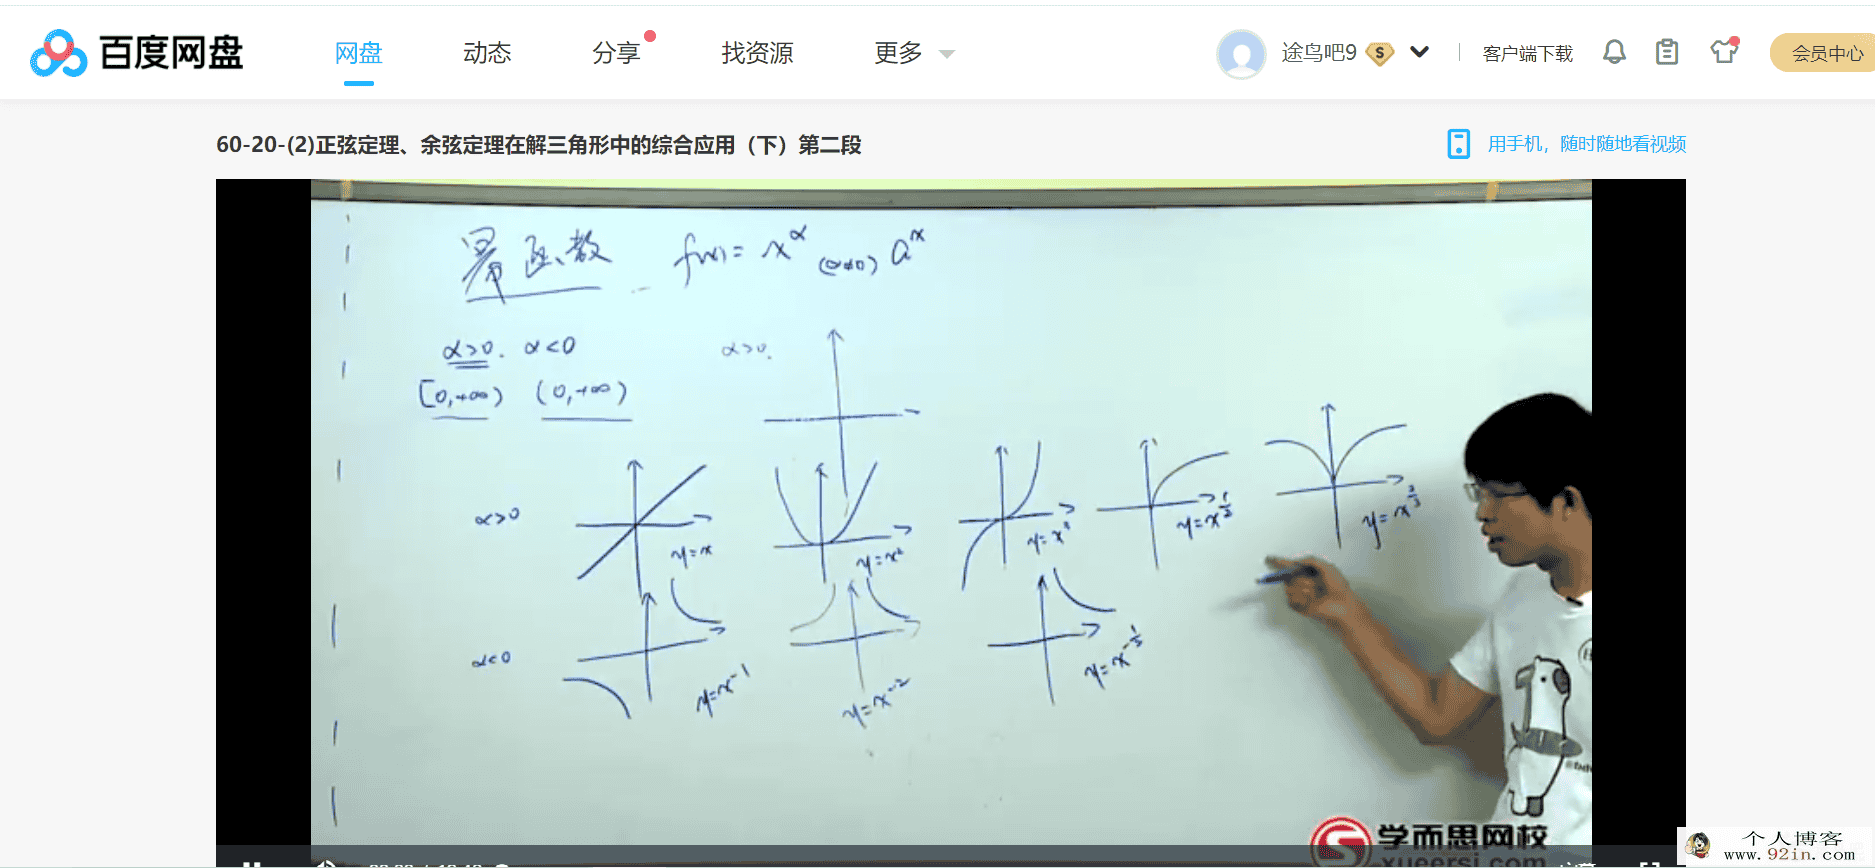 百度网盘
网盘 动态 分享 找资源 更多
途鸟吧9 客户端下载 会员中心
60-20-(2)正弦定理、余弦定理在解三角形中的综合应用（下）第二段
用手机，随时随地看视频
幂函数 f(x)= x^α (α≠0) a^x
α>0. α<0 α>0.
[0,+∞) (0,+∞)
α>0 y=x y=x² y=x³ y=x^½ y=x^⅔
α<0 y=x⁻¹ y=x⁻² y=x^-½
学而思网校
xueersi.com
个人博客
www.92in.com